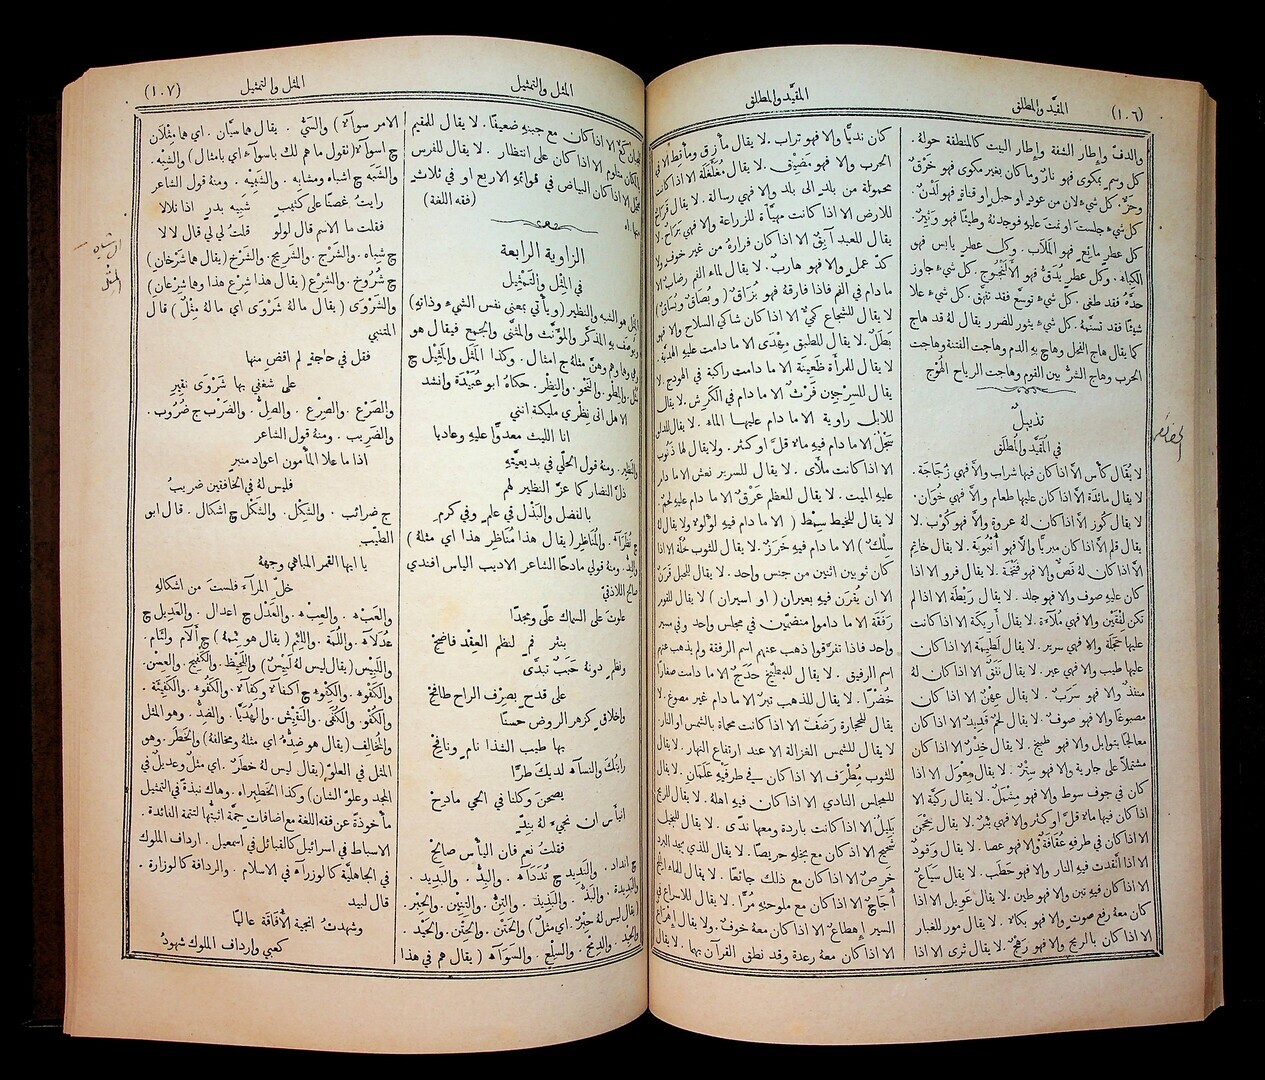 (١٠٦)
المقيَّد والمطلق
المقيَّد والمطلق
والدفّ وإطار الشفة وإطار البيت كالمنطقة حولهُ.
كل وسمٍ بمكوى فهو نارٌ وما كان بغير مكوى فهو حَرْقٌ
وحزٌّ. كل شيءٍ لان من عودٍ او حبلٍ او قناةٍ فهو لَدْنٌ.
كل شيءٍ جلستَ او نمتَ عليه فوجدتهُ وطيئًا فهو وَثيرٌ.
كل عطرٍ مائع فهو المَلاب. وكل عطرٍ يابس فهو
الكباء. وكل عطرٍ يُدَقُّ فهو الأَلَنْجُوج. كل شيءٍ جاوز
حدَّهُ فقد طغى. كل شيءٍ توسَّع فقد تفهَّق. كل شيءٍ علا
شيئًا فقد تسنَّمهُ. كل شيءٍ يثور للضرر يقال لهُ قد هاج
كما يقال هاج الفحل وهاج بهِ الدم وهاجت الفتنة وهاجت
الحرب وهاج الشرُّ بين القوم وهاجت الرياح الهُوْج
تذييلٌ
في المُقيَّد والمُطلَق
لا يُقال كأس الَّا اذا كان فيها شراب والَّا فهي زُجاجَة.
لا يقال مائدَة الَّا اذا كان عليها طعام والَّا فهي خُوَان.
لا يقال كُوز الَّا اذا كان لهُ عروة والَّا فهو كُوْب. لا
يقال قلم الَّا اذا كان مبريًّا والَّا فهو أُنْبُوبَة. لا يقال خاتِم
الَّا اذا كان لهُ فَصٌّ والَّا فهو فَتْخَة. لا يقال فرو الا اذا
كان عليه صوف والا فهو جِلد. لا يقال رَيْطَة الا اذا لم
تكن لفْقَيْن والا فهي مُلَاءَة. لا يقال أَرِيكة الا اذا كانت
عليها حَجَلَة والا فهي سرير. لا يقال لَطِيمَة الا اذا كان
عليها طيب والا فهي عير. لا يقال نَفَقٌ الا اذا كان لهُ
منفذٌ والا فهو سَرَبٌ. لا يقال عِهْنٌ الا اذا كان
مصبوغًا والا فهو صوفٌ. لا يقال لحمٌ قديدٌ الا اذا كان
معالجًا بتوابل والا فهو طبيخ. لا يقال خِدْرٌ الا اذا كان
مشتملًا على جارية والا فهو سِتْرٌ. لا يقال مِغْوَل الا اذا
كان في جوف سوط والا فهو مِشْمَلٌ. لا يقال ركيَّة الا
اذا كان فيها ماءٌ قلَّ او كثر والا فهي بئرٌ. لا يقال مِحْجَن
الا اذا كان في طرفهِ عُقافةٌ والا فهو عصا. لا يقال وَقُودٌ
الا اذا اتَّقدت فيه النار والا فهو حَطَب. لا يقال سَيَاعٌ
الا اذا كان فيه تبن والا فهو طين. لا يقال عَوِيل الا اذا
كان معهُ رفع صوتٍ والا فهو بكاءٌ. لا يقال مور للغبار
الا اذا كان بالريح والا فهو رَهَجٌ. لا يقال ثرى الا اذا
كان نديًّا والا فهو تراب. لا يقال مأزِق ومأقِط الا في
الحرب والا فهو مَضِيق. لا يقال مُغَلْغَلة الا اذا كانت
محمولة من بلدٍ الى بلد والا فهي رسالة. لا يقال قَرَاح
للارض الا اذا كانت مهيَّأَة للزراعة والا فهي بَرَاح. لا
يقال للعبد آبِقٌ الا اذا كان فرارهُ من غير خوف ولا
كدّ عملٍ والا فهو هاربٌ. لا يقال لماء الفم رضاب الا
ما دام في الفم فاذا فارقهُ فهو بُزَاقٌ (وبُصَاقٌ وبُسَاقٌ)
لا يقال للشجاع كميٌّ الا اذا كان شاكي السلاح والا فهو
بَطَلٌ. لا يقال للطبق مِهْدًى الا ما دامت عليهِ الهديَّة.
لا يقال للمرأة ظَعِينَة الا ما دامت راكبة في الهودج. لا
يقال للسِرْجِين فَرْثٌ الا ما دام في الكَرِش. لا يقال
للابل راوية الا ما دام عليها الماء. لا يقال للدلو
سَجْلٌ الا ما دام فيهِ ماء قلَّ او كثر. ولا يقال لها ذَنُوب
الا اذا كانت ملأَى. لا يقال للسرير نعش الا ما دام
عليهِ الميت. لا يقال للعظم عَرْقٌ الا ما دام عليهِ لحم.
لا يقال للخيط سِمْط (الا ما دام فيهِ لؤلؤة ولا يقال لهُ
سِلْكٌ) الا ما دام فيهِ خَرَزٌ. لا يقال للثوب حُلَّة الا اذا
كان ثوبين اثنين من جنس واحد. لا يقال للحبل قَرَنٌ
الا ان يُقرَن فيهِ بعيران (او اسيران) لا يقال للقوم
رَفَقَة الا ما داموا منضمّين في مجلس واحد وفي سير
واحد فاذا تفرَّقوا ذهب عنهم اسم الرفقة ولم يذهب عنهم
اسم الرفيق. لا يقال للبطّيخ حَدَجٌ الا ما دامت صغارًا
خُضْرًا. لا يقال للذهب تِبرٌ الا ما دام غير مصوغ. لا
يقال للحجارة رَضْفٌ الا اذا كانت محماة بالشمس او النار.
لا يقال للشمس الغزالة الا عند ارتفاع النهار. لا يقال
للثوب مُطْرَف الا اذا كان في طرفيهِ عَلَمان. لا يقال
للمجلس النادي الا اذا كان فيهِ اهلهُ. لا يقال للريح
بَلِيلٌ الا اذا كانت باردة ومعها ندًى. لا يقال للبخيل
شحيح الا اذا كان مع بخلهِ حريصًا. لا يقال للذي يجد البرد
خَرِصٌ الا اذا كان مع ذلك جائعًا. لا يقال للماء الملح
أُجَاجٌ الا اذا كان مع ملوحتهِ مُرًّا. لا يقال للاسراع في
السير إهطاعٌ الا اذا كان معهُ خوفٌ. ولا يقال إهْرَاعٌ
الا اذا كان معهُ رعدة وقد نطق القرآن بهما. لا يقال
المثل والتمثيل
المثل والتمثيل
(١٠٧)
للجبان كَعٌّ الا اذا كان مع جبنهِ ضعيفًا. لا يقال للمقيم
بالمكان متلوِّم الا اذا كان على انتظار. لا يقال للفرس
محجَّل الا اذا كان البياض في قوائمهِ الاربع او في ثلاث
منها
(فقه اللغة)
الزاوية الرابعة
في المِثْل والتَمْثِيل
المِثْل هو الشبه والنظير (ويأتي بمعنى نفس الشيء وذاتهِ)
ويوصف بهِ المذكَّر والمؤنَّث والمثنَّى والجمع فيقال هو
وهي وهما وهم وهنَّ مثلهُ ج امثال. وكذا المَثَل والمَثِيل ج
مُثُل. والنِظْو. والنَحْو. والنِظْر. حكاهُ ابو عُبَيْدَة وانشد
الا هل اتى نِظْري مليكة انني
انا الليث معدوًّا عليهِ وعاديا
والنظير. ومنهُ قول الحلّي في بديعيَّتهِ
ذلَّ النضار كما عزَّ النظير لهم
بالفضل والبَذْل في علمٍ وفي كرمِ
ج نُظَرَآء. والمُنَاظِر (يقال هذا مُنَاظِر هذا اي مثلهُ)
والنِدّ. ومنهُ قولي مادحًا الشاعر الاديب الياس افندي
صالح اللاذقيّ
علوتَ على السماك علًى ومجدًا
بنثرِ فمٍ لنظم العِقْد فاضحْ
ونظمٍ دونهُ حَبَبٌ تبدَّى
على قدحٍ بصِرْف الراح طافحْ
واخلاقٍ كزهر الروض حسنًا
بها طيب الشذا نامٍ ونافحْ
رايتك والنسآء لديك طرًّا
يصحنَ وكلنا في الحي مادحْ
انيأس ان نجيء لهُ بندٍّ
فقلتُ نعم فان اليأس صالحْ
ج انداد. والنَدِيد ج نُدَدَآء. والبِدُّ. والبَدِيد.
والبَدِيدة. والبَذُّ. والبَذِيذ. والتِنُّ. والتِنِين. والحِبْر.
(يقال ليس لهُ حِبْرٌ اي مثلٌ) والحَتْن. والحِتْن. والحَيْد.
والحِيد. والدِمْج. والسِلْع. والسَوَآء (يقال هم في هذا
الامر سوآء) والسَيُّ. يقال هما سيَّان. اي هما مِثْلان
ج اسوآء (تقول ما هم لك باسوآء اي بامثال) والشِبْه.
والشَبَه ج اشباه ومشابه. والشَبِيْه. ومنهُ قول الشاعر
رايتُ غصنًا على كثيبٍ
شبيه بدرٍ اذا تلالا
فقلت ما الاسم قال لولو
قلت لي لي قال لا لا
ج شِباه. والشَرْج. والشَرِيج. والشَرْخ (يقال هما شَرْخان)
ج شُرُوخ. والشرْع (يقال هذا شرع هذا وهما شِرْعان)
والشَرْوَى (يقال ما لهُ شَرْوَى اي ما لهُ مِثْلٌ) قال
المتنبي
فقل في حاجةٍ لم اقضِ منها
على شغفي بها شَرْوَى نقيرِ
والصَرْع. والصِرْع. والصِلّ. والضَرْب ج ضُرُوب.
والضَرِيب. ومنهُ قول الشاعر
اذا ما علا المأمون اعواد منبر
فليس لهُ في الخافقين ضريبُ
ج ضرائب. والشِكْل. والشَكْل ج اشكال. قال ابو
الطيّب
يا ايها القمر المباهي وجههُ
خلِّ المرآء فلستَ من اشكالهِ
والعَبْء. والعِبْء. والعَدْل ج اعدال. والعَدِيل ج
عُدَلآء. واللُمَة. واللِئْم (يقال هو لِئمهُ) ج أَلآم ولئام.
واللَبِيْس (يقال ليس لهُ لَبِيْسٌ) واللَحِيْظ. والكَفِيح. والعِسْن.
والكَفْء. والكِفْء ج اكفآء وكفاء. والكُفُوء. والكَفِيئَة.
والكُفْو. والكُفَى. والنَقِيْض. والهُدَيَّا. والضِدُّ. وهو المثل
والمخالف (يقال هو ضدُّهُ اي مثلهُ ومخالفهُ) والخَطَر. وهو
المثل في العلوّ (يقال ليس لهُ خطَرٌ. اي مثلٌ وعديلٌ في
المجد وعلوّ الشان) وكذا الخَطِير. وهاك نبذةً في التمثيل
مأخوذةً عن فقه اللغة مع اضافاتٍ جمَّةٍ اثبتُّها لتتمة الفائدة.
الاسباط في اسرائيل كالقبائل في اسمعيل. ارداف الملوك
في الجاهليَّة كالوزرآء في الاسلام. والردافة كالوزارة.
قال لبيد
وشهدتُ انجية الأُفاقة عاليًا
كعبي وارداف الملوك شهودُ